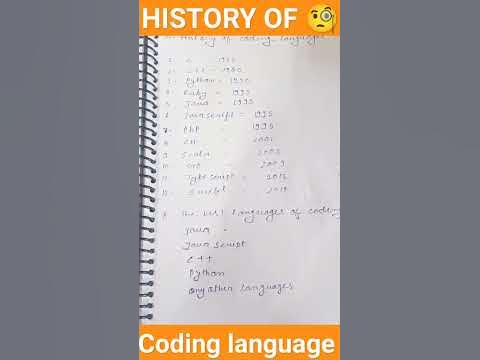 HISTORY OF 🧐
History of coding languages
1. C 1950
2. C++ - 1980
3. Python = 1990
4. Ruby = 1995
5. Java = 1995
6. Javascript = 1995
7. PHP 1995
8. C# 2001
9. Scala 2003
10. 2009
11. Typescript 2012
12. 2014
The best languages of coding
Java
Java script
C++
Python
any other languages
Coding language